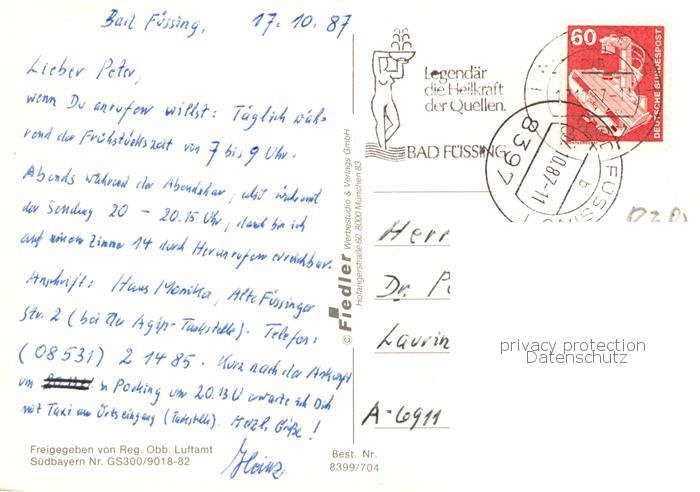 Bad Füssing, 17.10.87
Lieber Peter,
wenn Du anrufen willst: Täglich wäh-
rend der Frühstückszeit von 7 bis 9 Uhr.
Abends während der Abendschau, während
der Sendung 20 - 20.15 Uhr, dann bin ich
auf meinem Zimmer 14 durch Herumrufen erreichbar.
Anschrift: Haus Monika, Alte Füssinger
Str. 2 (bei der Agip-Tankstelle). Telefon:
(08531) 2 14 85. Kurz nach der Ankunft
um in Pocking um 20.13 U erwarte ich Dich
mit Taxi am Ortseingang (Tankstelle). Herzl. Grüße!
Heinz
Freigegeben von Reg. Obb. Luftamt
Südbayern Nr. GS300/9018-82
Best. Nr.
8399/704
© Fiedler Werbestudio & Verlags GmbH
Hofangerstraße 60, 8000 München 83
Legendär
die Heilkraft
der Quellen.
BAD FÜSSING
60
DEUTSCHE BUNDESPOST
8397
.10.87-11
b
BAD FÜSSING 1
Herr
Dr. P
Laurin
A-6911
privacy protection
Datenschutz